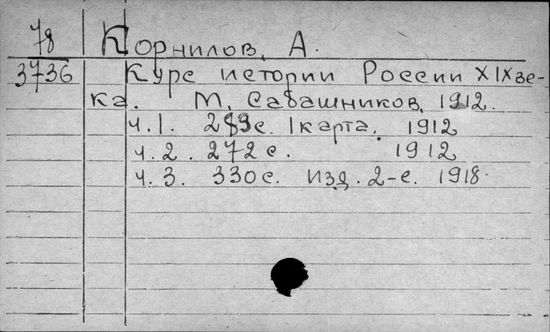 78 Корнилов, А.
3736 Курс истории России XIX ве-
ка. М. Сабашников, 1912.
ч.1. 289с. 1 карта. 1912
ч.2. 272с. 1912
ч.3. 330с. Изд. 2-е. 1918.